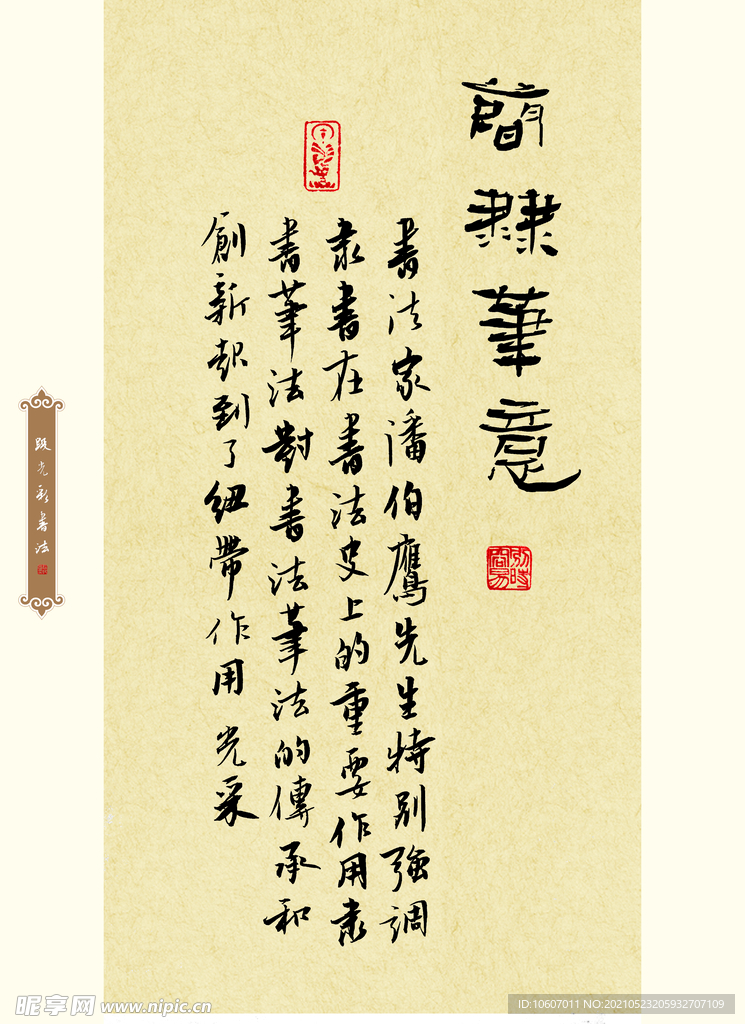 簡隸筆意
别時容易
書法家潘伯鷹先生特別強調
隶書在書法史上的重要作用隶
書筆法對書法筆法的傳承和
創新起到了紐帶作用 光采
段光彩書法
昵享网 www.nipic.cn
ID:10607011 NO:20210523205932707109